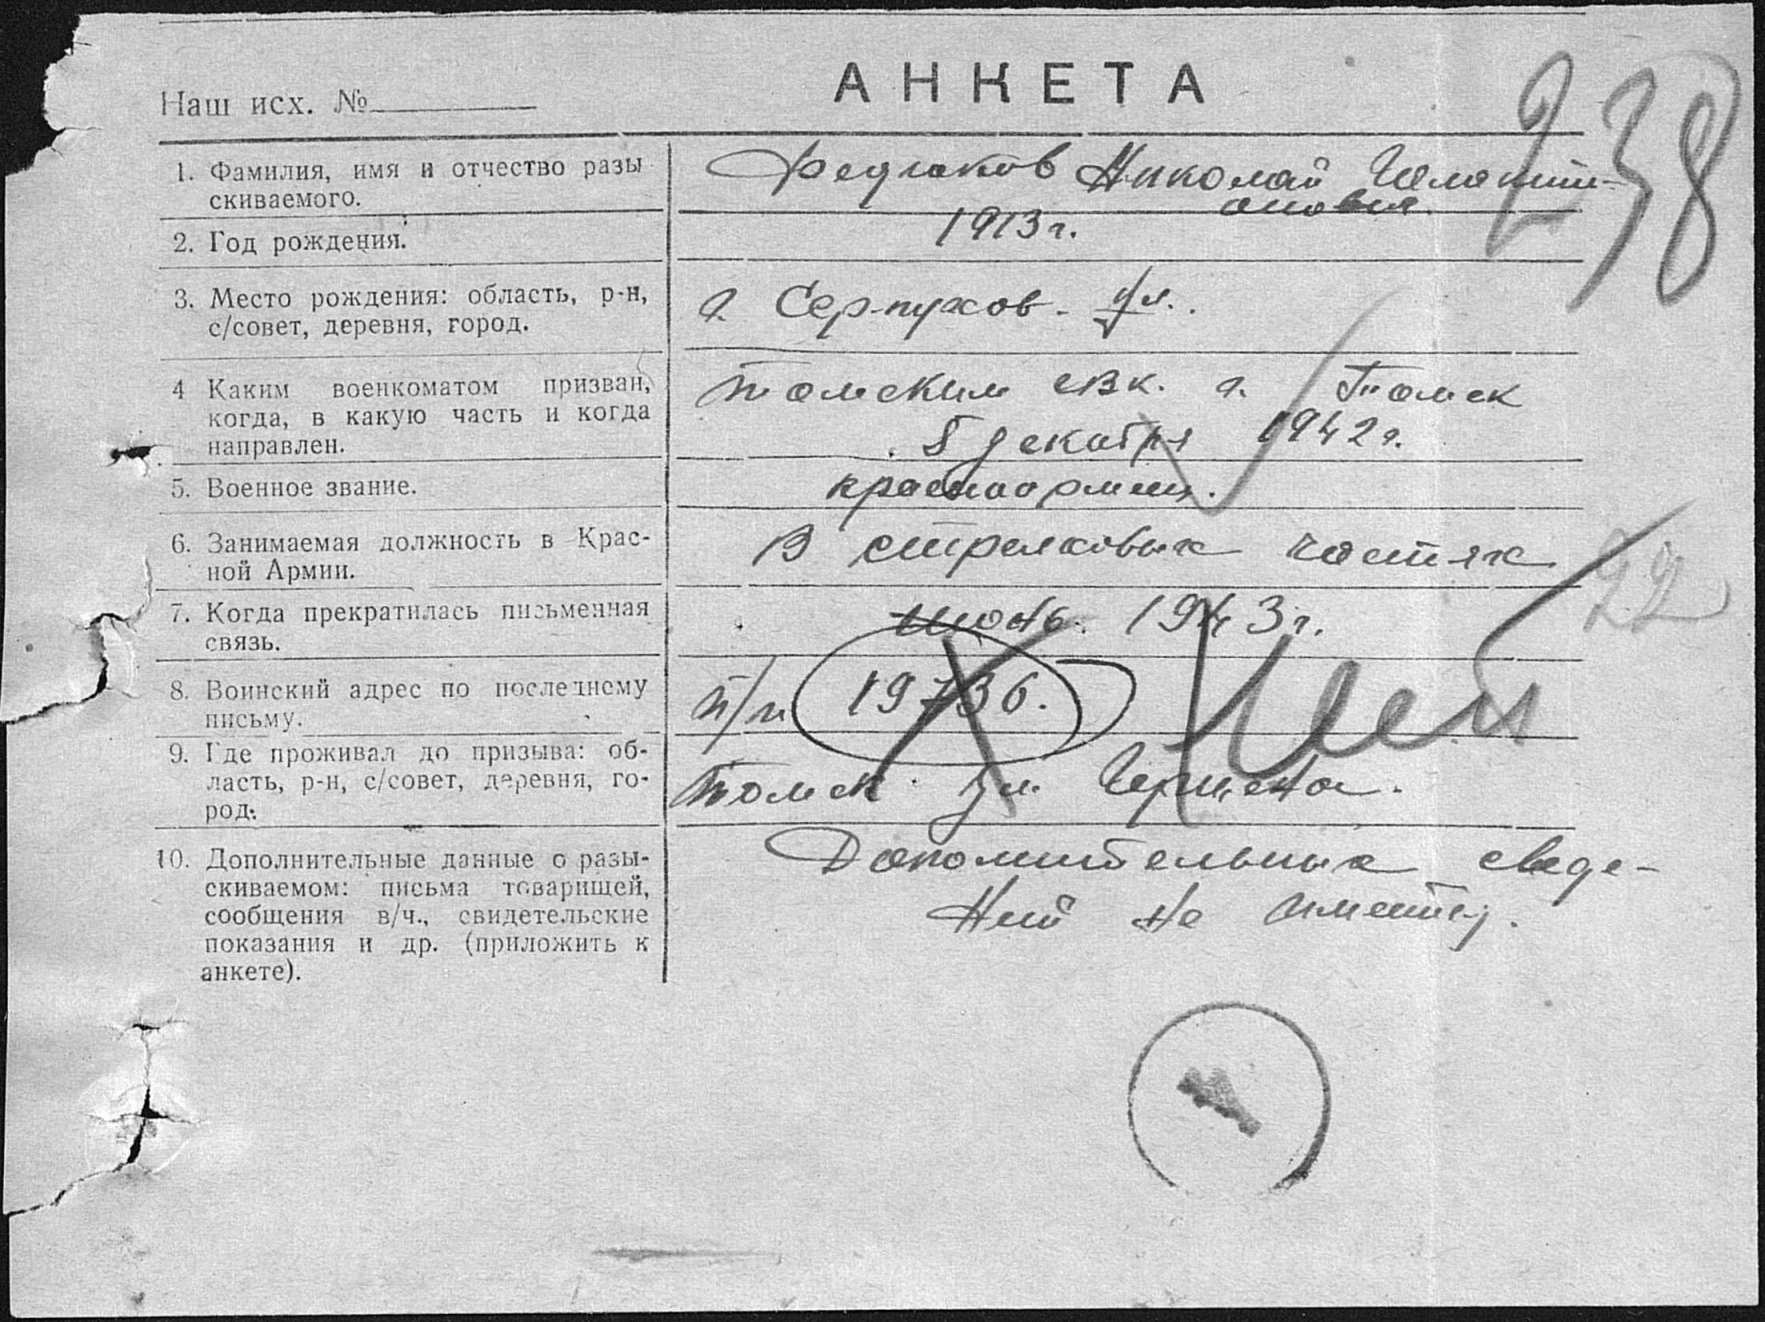 АНКЕТА
Наш исх. №
238
1. Фамилия, имя и отчество разы
скиваемого.
Федяков Николай
2. Год рождения.
1913 г.
3. Место рождения: область, р-н,
с/совет, деревня, город.
г. Серпухов.
4 Каким военкоматом призван,
когда, в какую часть и когда
направлен.
Томским г. Томск
5 декабря 1942 г.
5. Военное звание.
красноармеец.
6. Занимаемая должность в Крас-
ной Армии.
В стрелковых частях
22
7. Когда прекратилась письменная
связь.
1943 г.
8. Воинский адрес по последнему
письму.
п/п 19736.
Нет
9. Где проживал до призыва: об-
ласть, р-н, с/совет, деревня, го-
род.
Томск ул. Герцена.
10. Дополнительные данные о разы-
скиваемом: письма товарищей,
сообщения в/ч., свидетельские
показания и др. (приложить к
анкете).
Дополнительных сведе-
ний не имеется.